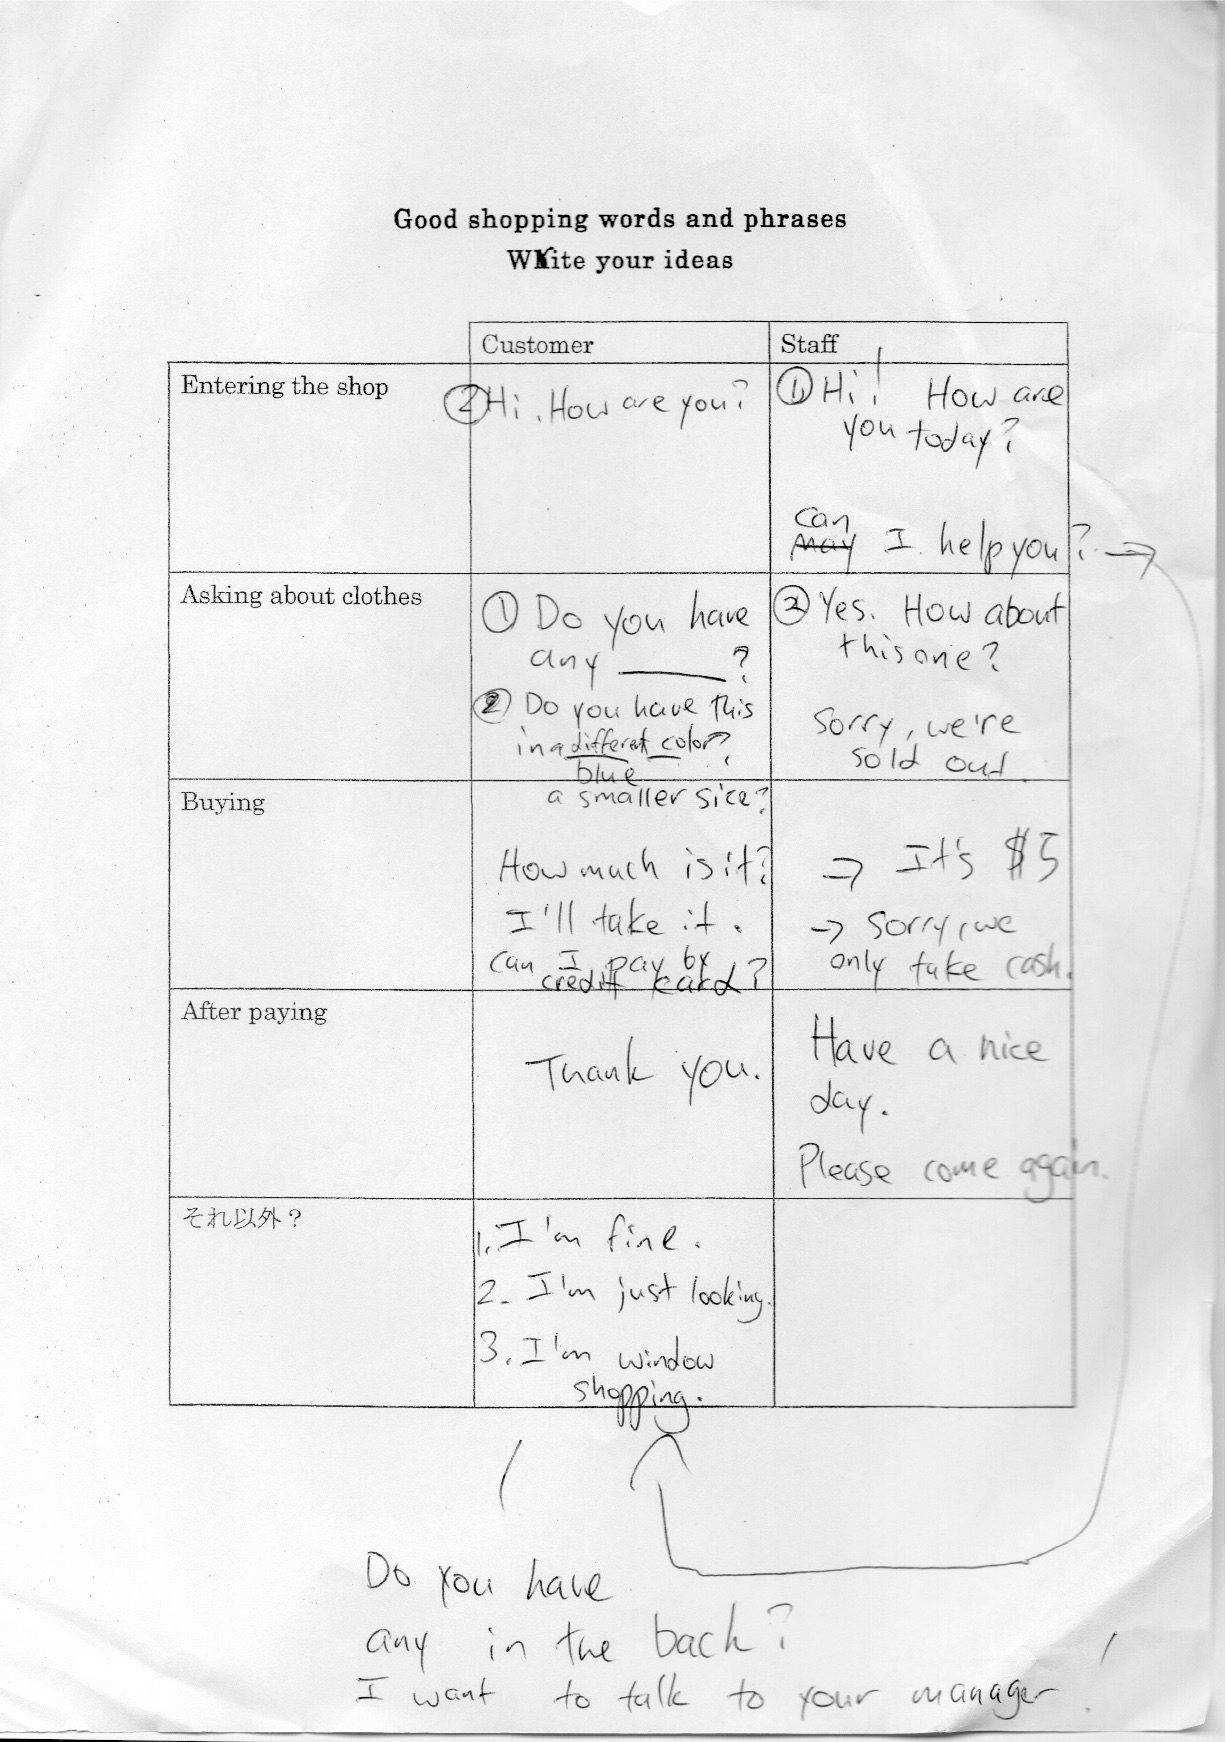 Good shopping words and phrases
Write your ideas
Customer
Staff
Entering the shop
② Hi. How are you?
① Hi! How are
you today?
can
May I help you? →
Asking about clothes
① Do you have
any ______?
② Do you have this
in a different color?
blue
a smaller size?
③ Yes. How about
this one?
Sorry, we're
sold out
Buying
How much is it?
I'll take it.
can I pay by
credit card?
→ It's $5
→ Sorry, we
only take cash.
After paying
Thank you.
Have a nice
day.
Please come again.
それ以外？
1. I'm fine.
2. I'm just looking.
3. I'm window
shopping.
Do you have
any in the back?
I want to talk to your manager